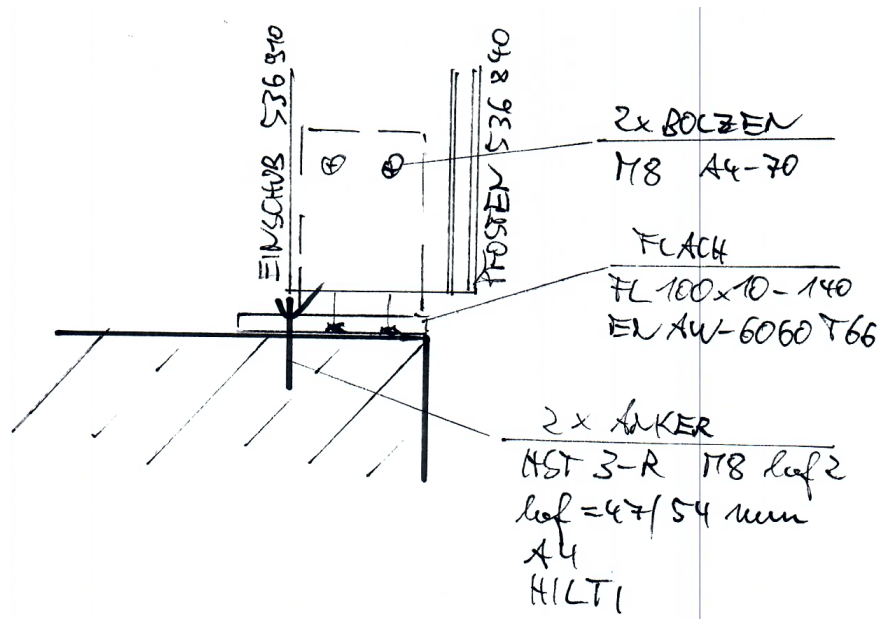 EINSCHUB 536 910
PFOSTEN 536 840
2x BOLZEN
M8 A4-70
FLACH
FL 100x10-140
EN AW-6060 T66
2x ANKER
HST 3-R M8 hef2
hef = 47/54 mm
A4
HILTI